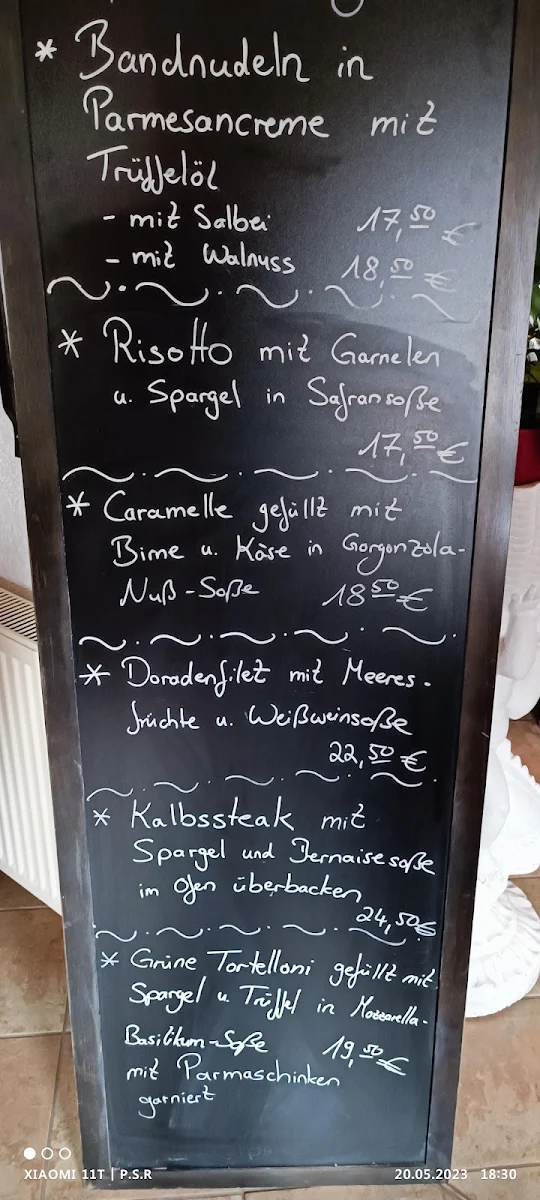 * Bandnudeln in
Parmesancreme mit
Trüffelöl
- mit Salbei 17,50 €
- mit Walnuss 18,50 €
* Risotto mit Garnelen
u. Spargel in Safransoße
17,50 €
* Caramelle gefüllt mit
Birne u. Käse in Gorgonzola-
Nuß-Soße 18 50 €
* Doradenfilet mit Meeres-
früchte u. Weißweinsoße
22,50 €
* Kalbssteak mit
Spargel und Bernaisesoße
im Ofen überbacken
24,50€
* Grüne Tortelloni gefüllt mit
Spargel u Trüffel in Mozzarella-
Basilikum-Soße 19,50 €
mit Parmaschinken
garniert
XIAOMI 11T | P.S.R 20.05.2023 18:30